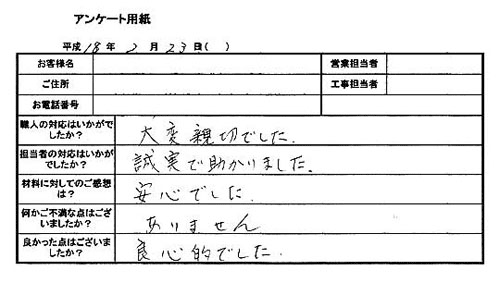 アンケート用紙
平成 18 年 2 月 23 日( )
お客様名 営業担当者
ご住所 工事担当者
お電話番号
職人の対応はいかがで
したか？ 大変親切でした.
担当者の対応はいかが
でしたか？ 誠実で助かりました.
材料に対してのご感想
は？ 安心でした.
何かご不満な点はござ
いましたか？ ありません
良かった点はございま
したか？ 良心的でした.